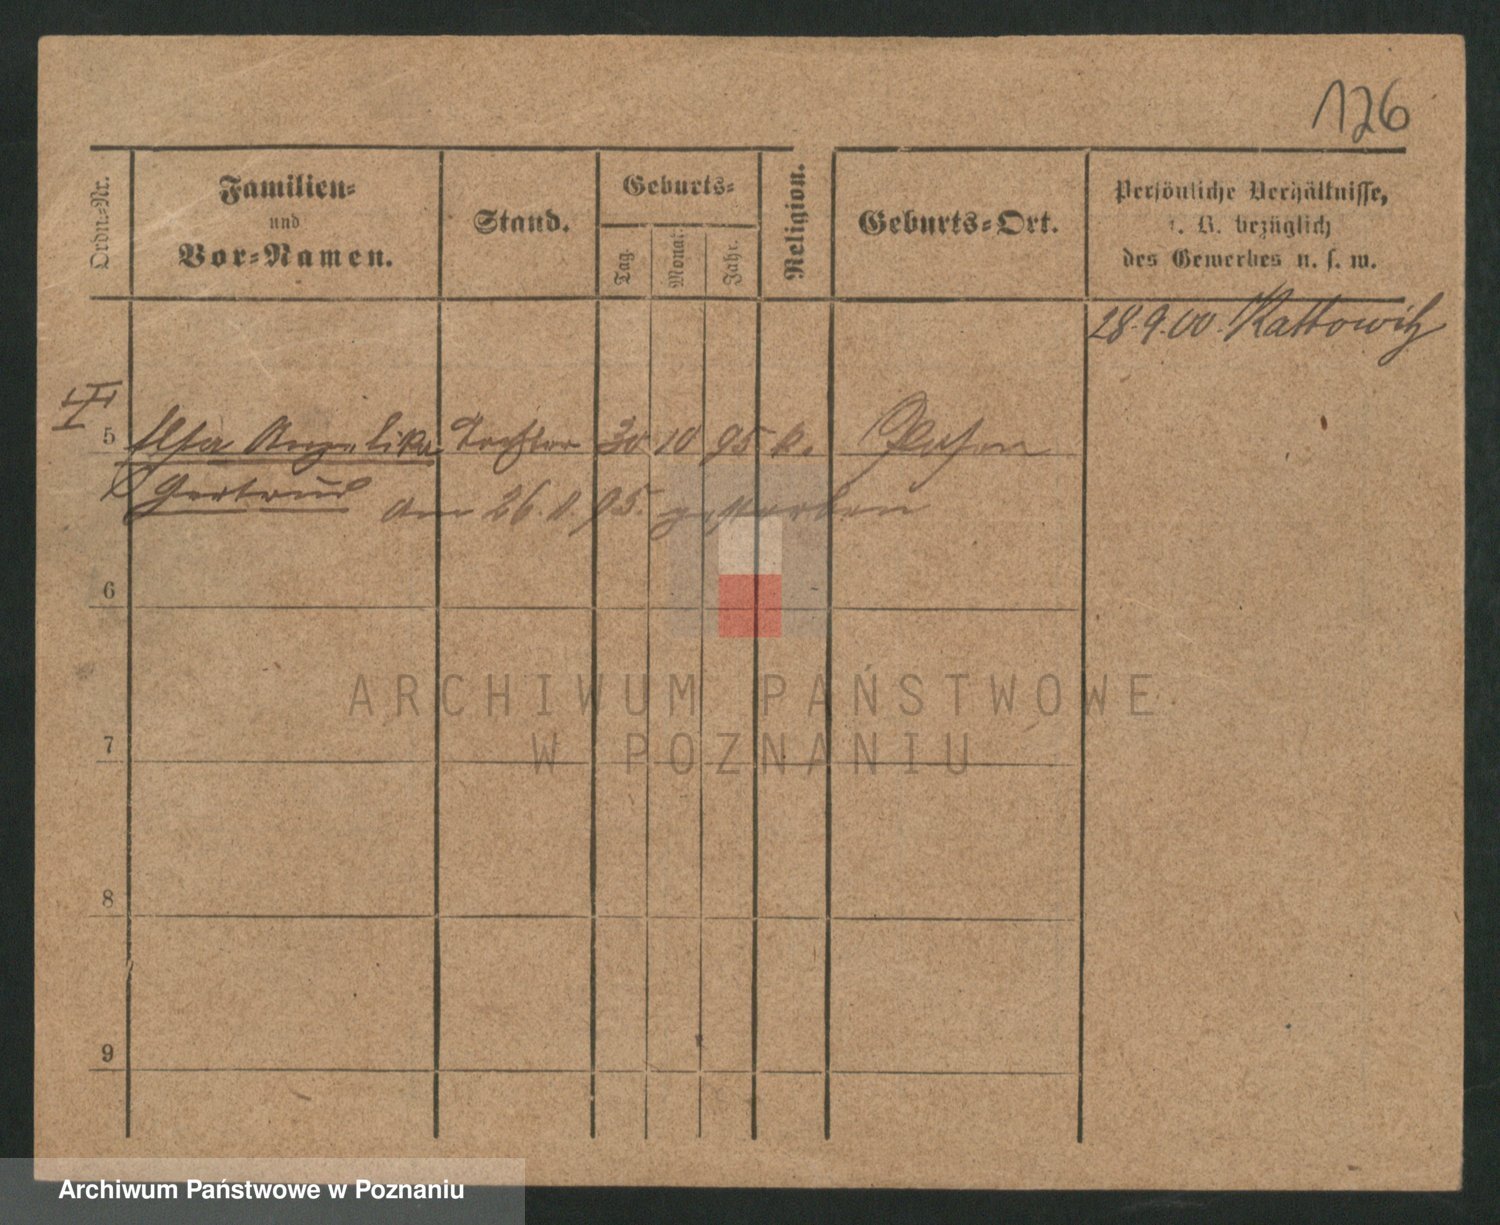 126
Ordn.-Nr.
Familien-
und
Vor-Namen.
Stand.
Geburts-
Tag.
Monat.
Jahr.
Religion.
Geburts-Ort.
Persönliche Verhältnisse,
z. B. bezüglich
des Gewerbes u. s. w.
28.9.00. Kattowitz
5 Elsa Angelika Tochter 30 10 95 k. Posen
Gertrud am 26. 95. gestorben
6
7
8
9
ARCHIWUM PAŃSTWOWE
W POZNANIU
Archiwum Państwowe w Poznaniu